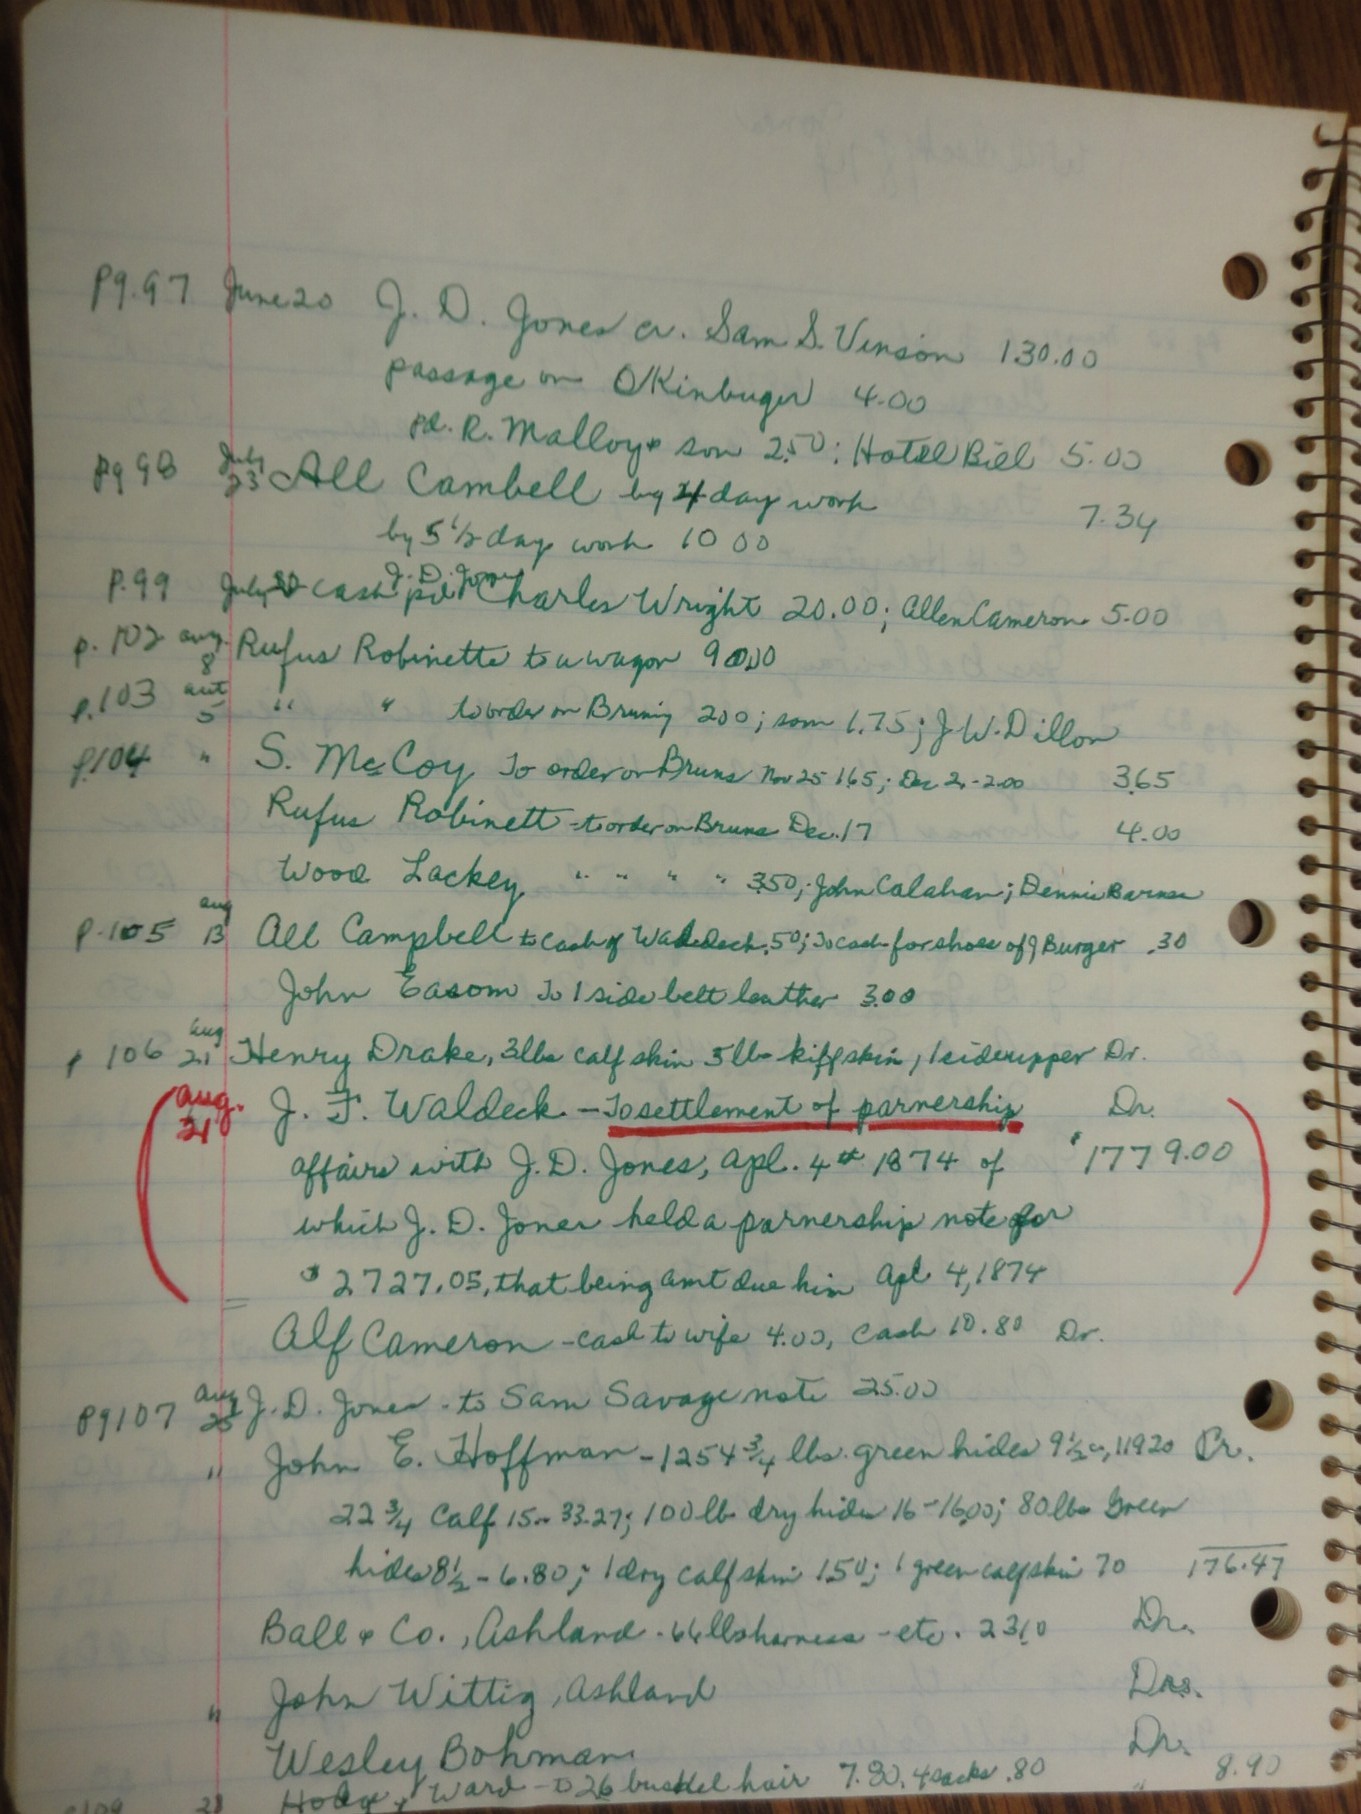 Pg. 97 June 20 J. D. Jones cr. Sam S. Vinson 130.00
passage on 4.00
pd. R. Malloy + son 2.50; Hotel Bill 5.00
Pg 98 July 23 All Cambell by 4 day work 7.34
by 5 1/2 day work 10 00
P. 99 July cash pd J. D. Jones Charles Wright 20.00; Allen Cameron 5.00
p. 102 aug. 8 Rufus Robinette to a wagon 90.00
p. 103 5 " " to order on Bruning 200; son 1.75; J W. Dillon
p. 104 " S. McCoy To order on Bruns Nov 25 1.65; Dec 2, - 2.00 3.65
Rufus Robinett - to order on Bruns Dec. 17 4.00
Wood Lackey " " " " 3.50; John Calahan; Dennis Barnes
p. 105 aug 13 All Campbell to cash of Waldeck .50; To cash for shoes of J Burger .30
John Easom To 1 side belt leather 3.00
p 106 aug 21 Henry Drake, 3lbs calf skin 5 lbs kiff skin, 1 side upper Dr.
aug. 21 J. F. Waldeck - To settlement of parnership Dr.
affairs with J. D. Jones, Apl. 4th 1874 of $1779.00
which J. D. Jones held a parnership note for
$2727.05, that being amt due him Apl 4, 1874
Alf Cameron - cash to wife 4.00, Cash 10.80 Dr.
Pg 107 aug 25 J. D. Jones - to Sam Savage note 25.00
" John E. Hoffman - 1254 3/4 lbs. green hides 9 1/2 c, 119 20 Cr.
22 3/4 Calf 15 - 33.27; 100 lb dry hides 16 - 16.00; 80 lbs Green
hides 8 1/2 - 6.80; 1 dry calf skin 1.50; 1 green calfskin 70 176.47
Ball + Co., Ashland - 66 lbs harness - etc. 23.10 Dr.
" John Wittig, Ashland Drs.
Wesley Bohman Dr.
31 Hodge + Ward - to 26 bushel hair 7.80. 4 sacks .80 " 8.90